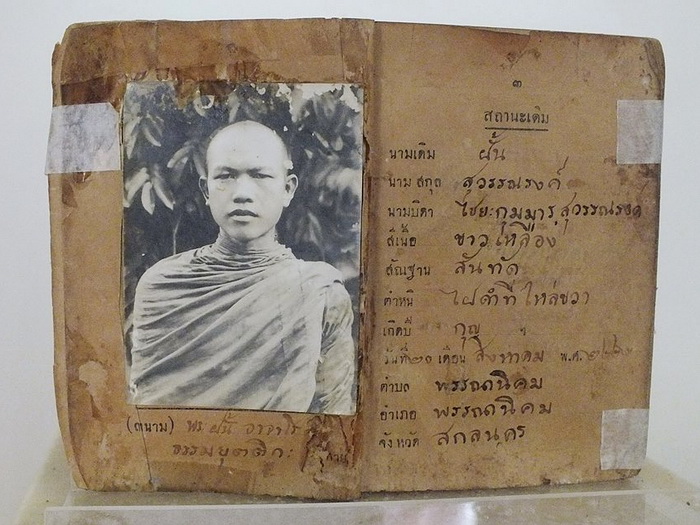 (ฅนาม) พร ฝั้น อาจาโร
ธรรมยุตติกะ
๓
สถานะเดิม
นามเดิม ฝั้น
นาม สกุล สุวรรณรงค์
นามบิดา ไชยะกุมมาร สุวรรณรงค์
สีเนื้อ ขาวเหลือง
สัณฐาน สันทัด
ตำหนิ ไฝดำที่ไหล่ขวา
เกิดปี กุญ
วันที่ ๒๐ เดือน สิงหาคม พ.ศ.
ตำบล พรรณานิคม
อำเภอ พรรณานิคม
จังหวัด สกลนคร